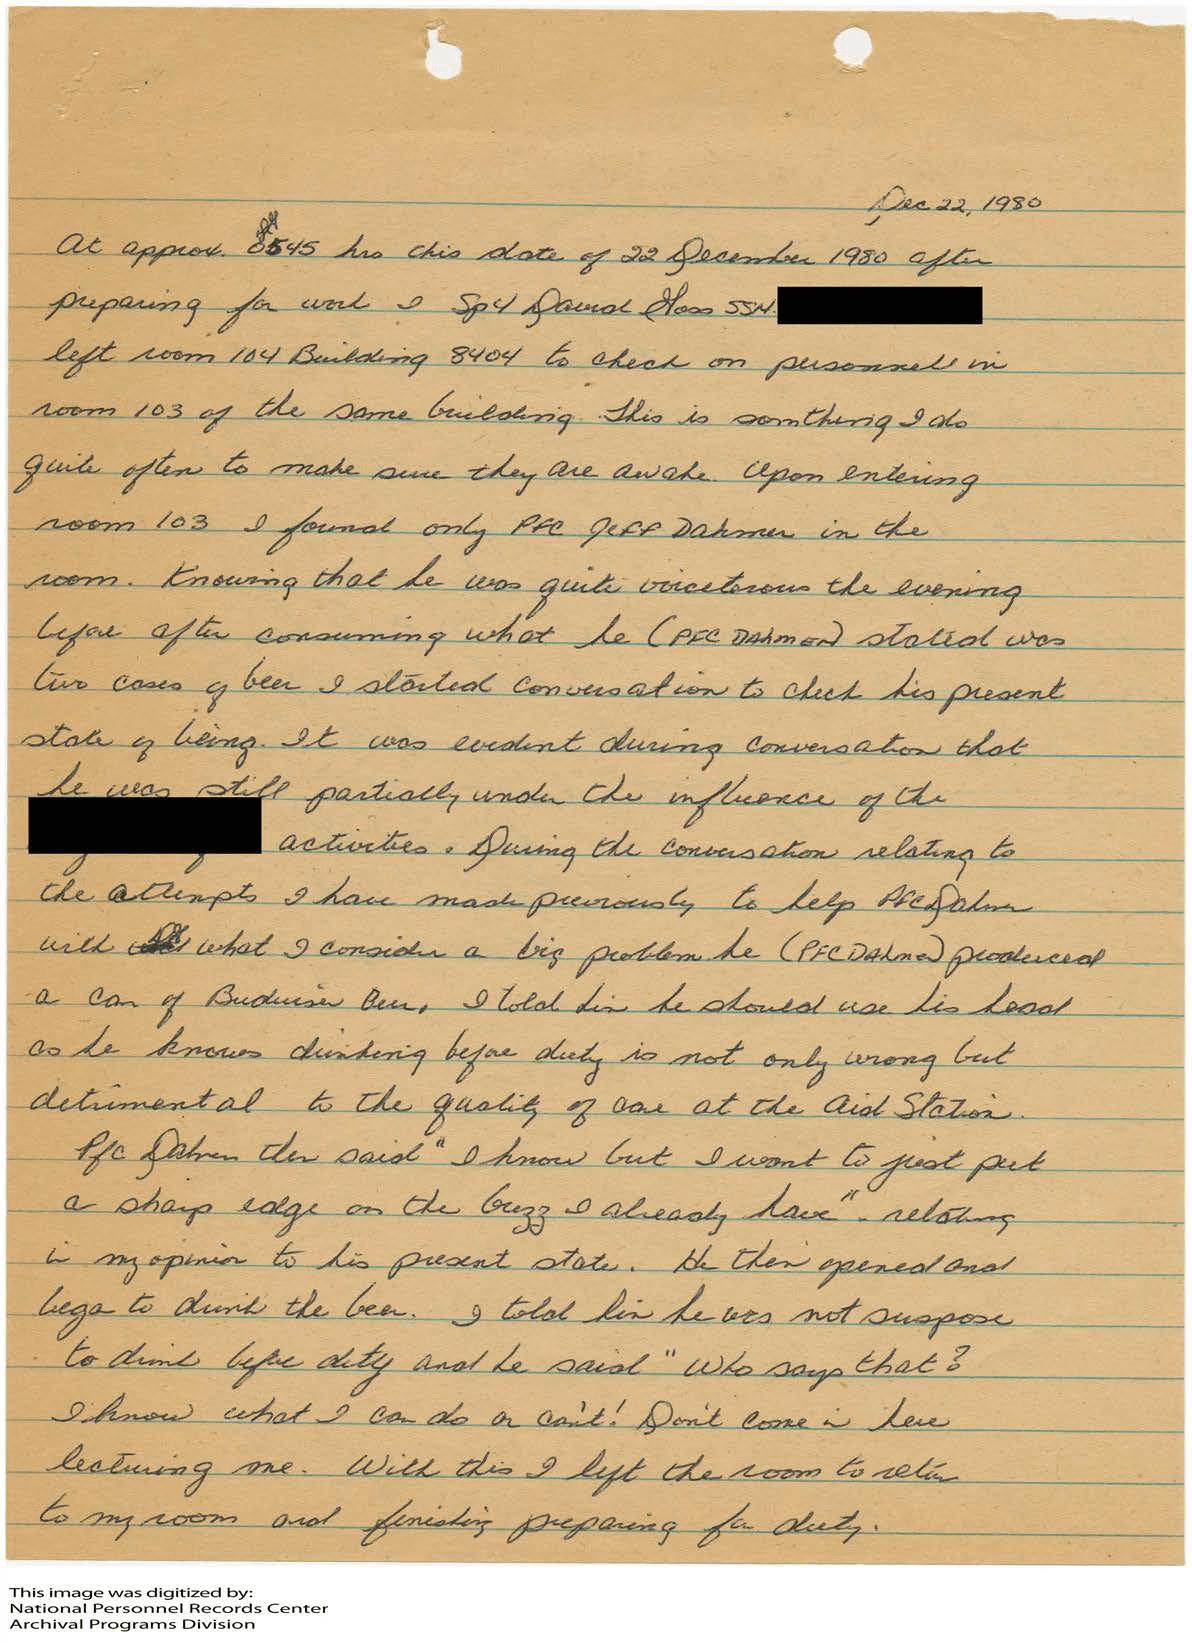 Dec 22, 1980
At approx. 0545 hrs this date of 22 December 1980 after
preparing for work I Sp4 David Goss SSN.
left room 104 Building 8404 to check on personnel in
room 103 of the same building. This is somthing I do
quite often to make sure they are awake. Upon entering
room 103 I found only PFC Jeff Dahmer in the
room. Knowing that he was quite voiceterous the evening
before after consuming what he (PFC Dahmer) stated was
two cases of beer I started conversation to check his present
state of being. It was evident during conversation that
he was still partially under the influence of the
activities. During the conversation relating to
the attempts I have made previously to help PFC Dahmer
with what I consider a big problem he (PFC Dahmer) produced
a can of Budwiser Beer, I told him he should use his head
as he knows drinking before duty is not only wrong but
detrimental to the quality of care at the Aid Station.
Pfc Dahmer then said "I know but I want to just put
a sharp edge on the buzz I already have". relating
in my opinion to his present state. He then opened and
bega to drink the beer. I told him he was not suspose
to drink before duty and he said "Who says that?
I know what I can do or can't! Don't come in here
lecturing me. With this I left the room to return
to my room and finishing preparing for duty.
This image was digitized by:
National Personnel Records Center
Archival Programs Division